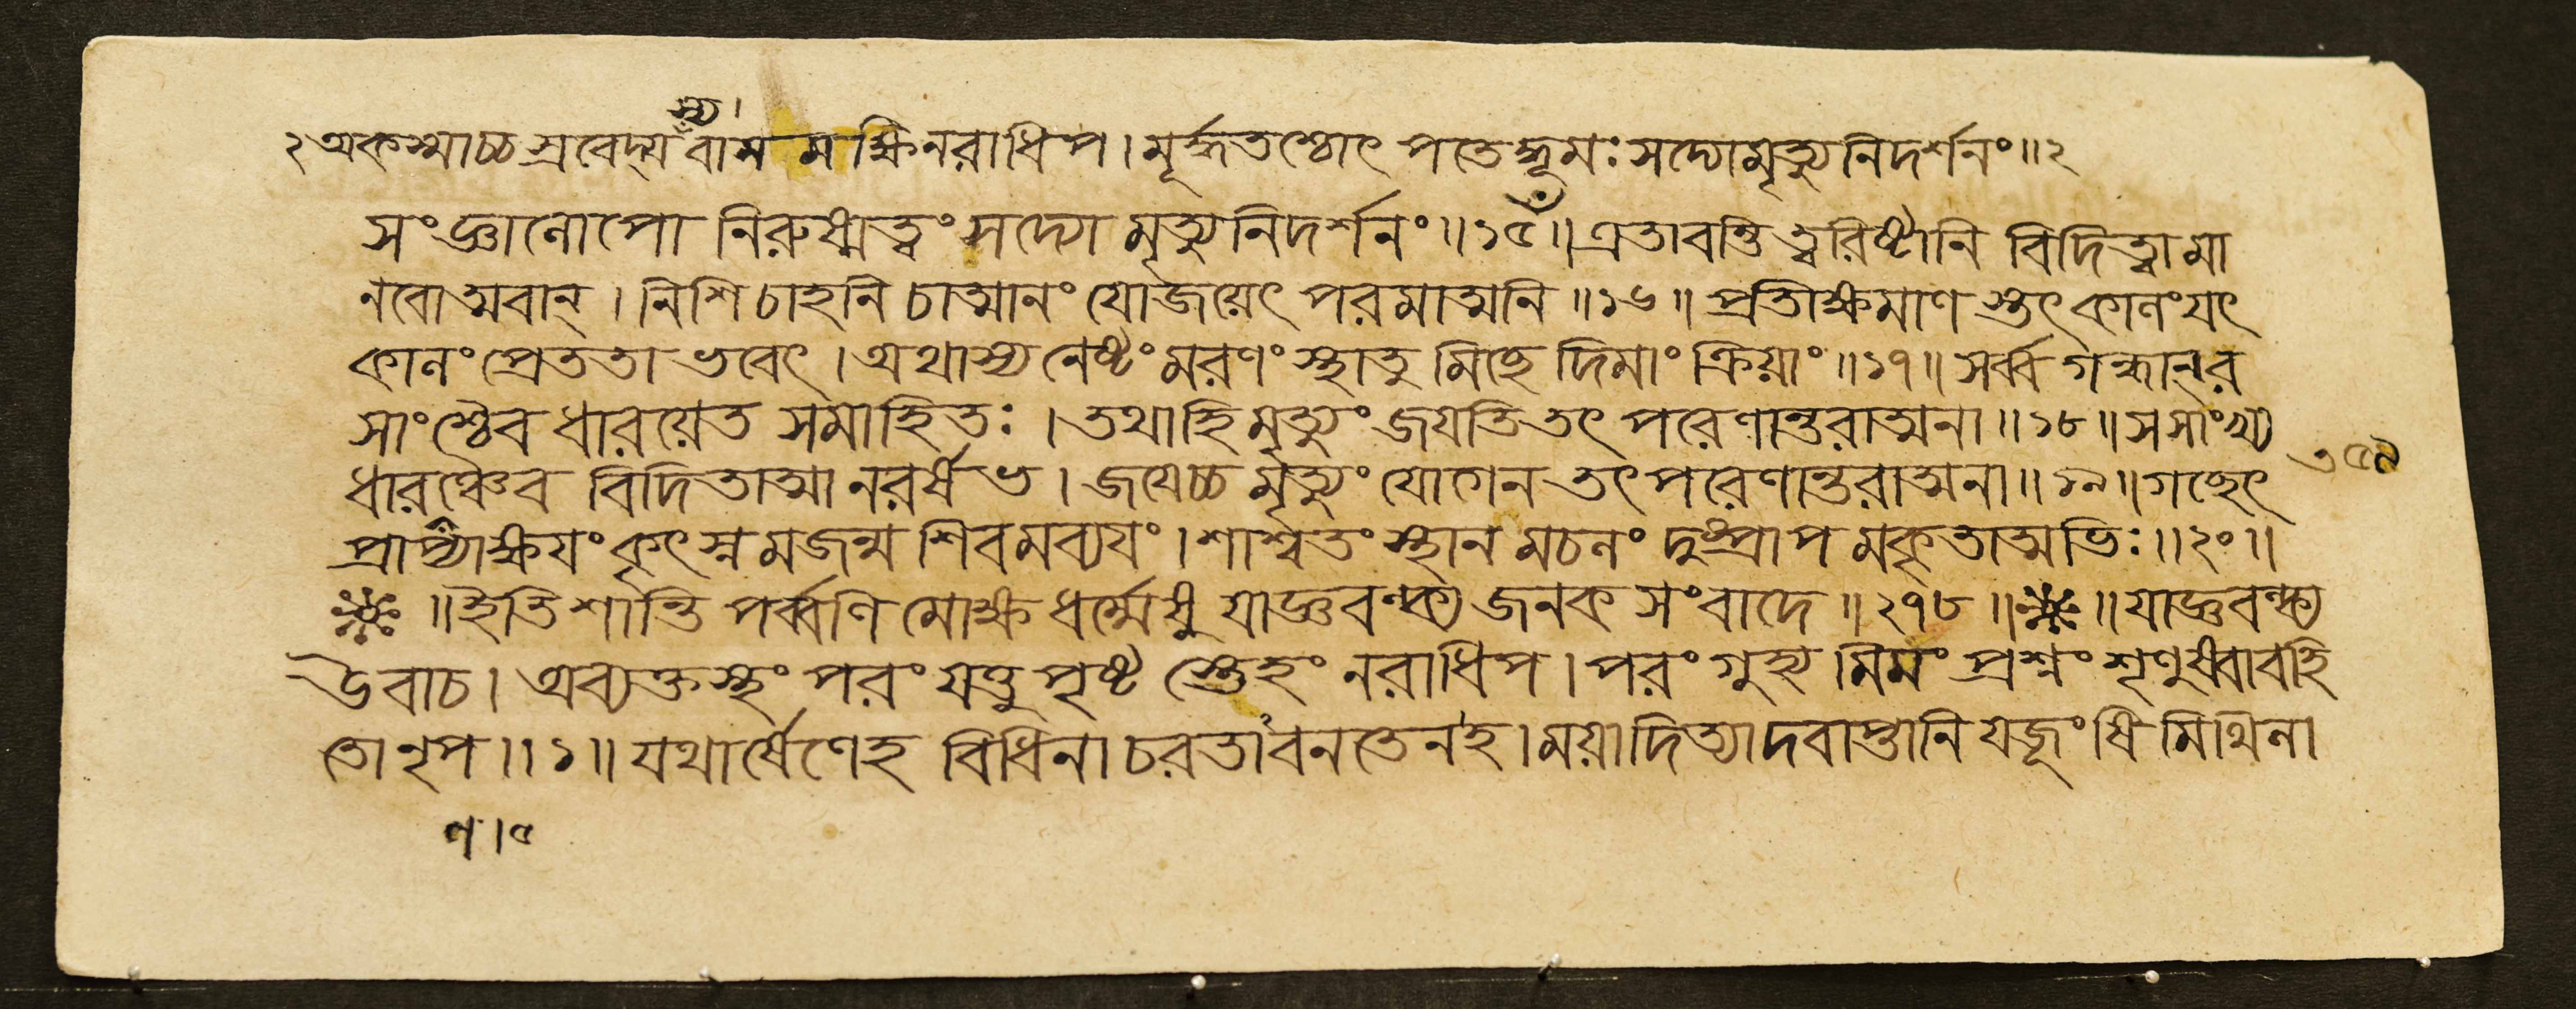 স্য।
২ অকস্মাচ্চ স্রবেদ্য বাম মক্ষি নরাধিপ। মূর্দ্ধতশ্চোৎ পতেদ্ধূমঃ সদ্যোমৃত্যু নিদর্শনং॥২
সংজ্ঞানোপো নিরুষ্মত্বং সদ্যো মৃত্যু নিদর্শনং॥১৫॥ এতাবন্তি ত্বরিষ্টানি বিদিত্বামা
নবোত্মবান্। নিশি চাহনি চাত্মানং যোজয়েৎ পরমাত্মনি॥১৬॥ প্রতীক্ষমাণ স্তৎ কানং যৎ
কানং প্রেততা ভবেৎ। অথাস্য নেষ্টং মরণং স্থাতু মিছে দিমাং ক্রিয়াং॥১৭॥ সর্ব্ব গন্ধান্র
সাংশ্চৈব ধারয়েত সমাহিতঃ। তথাহি মৃত্যুং জয়তি তৎ পরেণান্তরাত্মনা॥১৮॥ সসাংখ্য
ধারণঞ্চৈব বিদিতাত্মা নরর্ষভ। জয়েচ্চ মৃত্যুং যোগেন তৎ পরেণান্তরাত্মনা॥১৯॥ গচ্ছেৎ
প্রাপ্যাক্ষয়ং কৃৎস্ন মজন্ম শিবমব্যয়ং। শাশ্বতং স্থান মচনং দুষ্প্রাপ মকৃতাত্মভিঃ॥২০॥
॥ইতি শান্তি পর্ব্বণি মোক্ষ ধর্ম্মেষু যাজ্ঞবল্ক্য জনক সংবাদে॥২৭৮॥ ॥যাজ্ঞবল্ক্য
উবাচ। অব্যক্তস্থং পরং যত্তু পৃষ্ট স্তেহং নরাধিপ। পরং গুহ্য মিমং প্রশ্নং শৃণুষ্বাবহি
তো নৃপ॥১॥ যথার্ষেণেহ বিধিনা চরতাবনতেন হ। ময়াদিত্যাদবাপ্তানি যজূংষি মিথিনা
ণ।৫